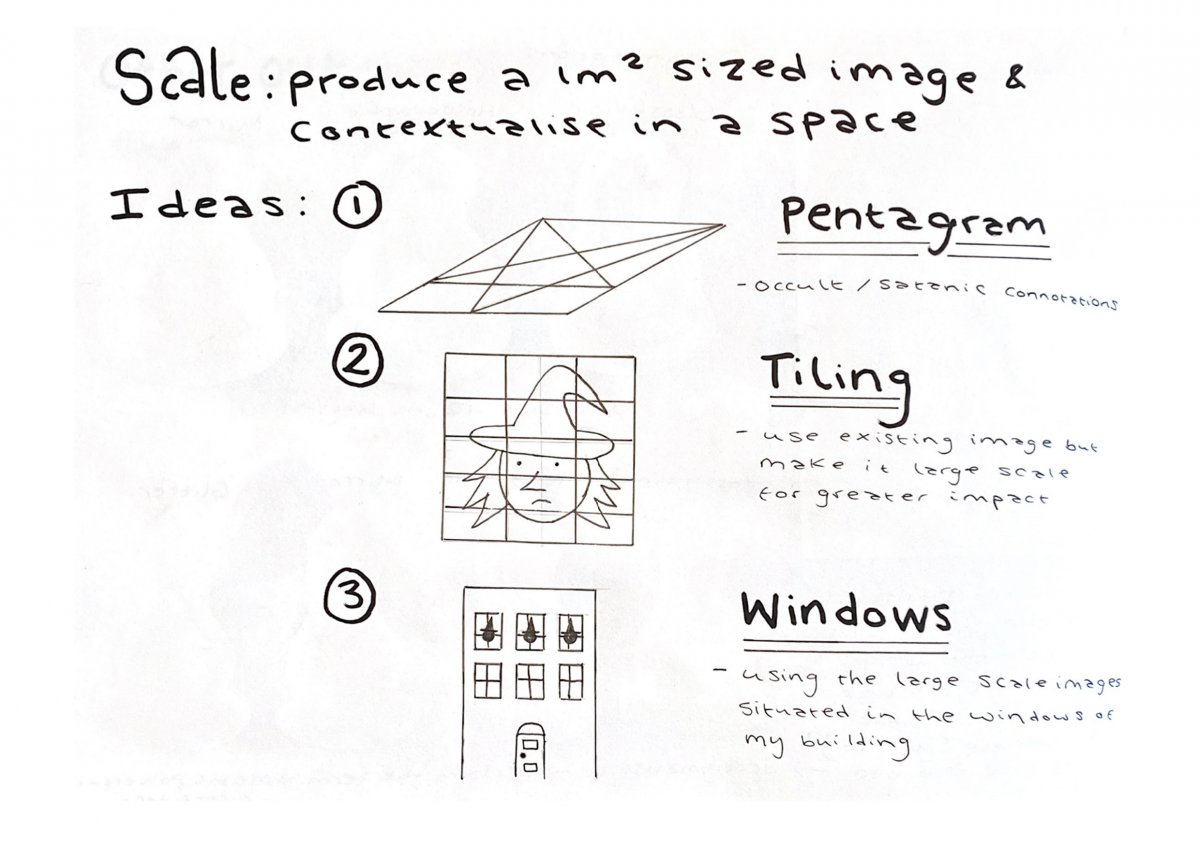 Scale: produce a 1m² sized image &
contextualise in a space
Ideas: ①
Pentagram
- occult / satanic connotations
②
Tiling
- use existing image but
make it large scale
for greater impact
③
Windows
- using the large scale images
situated in the windows of
my building